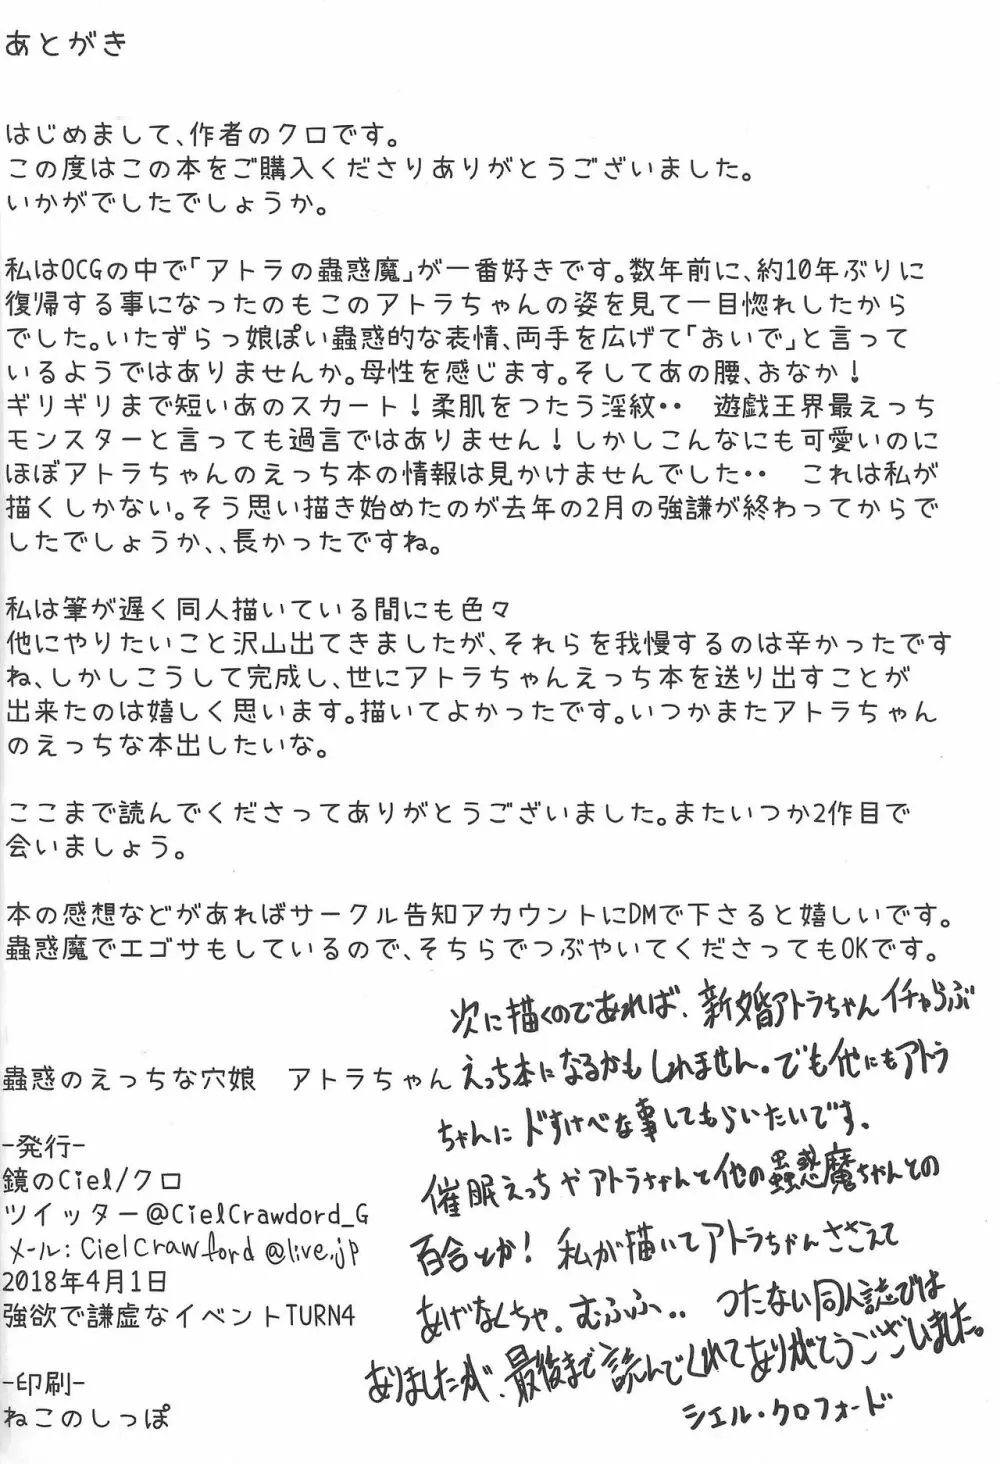 あとがき
はじめまして、作者のクロです。
この度はこの本をご購入くださりありがとうございました。
いかがでしたでしょうか。
私はOCGの中で「アトラの蟲惑魔」が一番好きです。数年前に、約10年ぶりに
復帰する事になったのもこのアトラちゃんの姿を見て一目惚れしたから
でした。いたずらっ娘ぽい蟲惑的な表情、両手を広げて「おいで」と言って
いるようではありませんか。母性を感じます。そしてあの腰、おなか！
ギリギリまで短いあのスカート！柔肌をつたう淫紋・・　遊戯王界最えっち
モンスターと言っても過言ではありません！しかしこんなにも可愛いのに
ほぼアトラちゃんのえっち本の情報は見かけませんでした・・　これは私が
描くしかない。そう思い描き始めたのが去年の2月の強謙が終わってからで
したでしょうか、、長かったですね。
私は筆が遅く同人描いている間にも色々
他にやりたいこと沢山出てきましたが、それらを我慢するのは辛かったです
ね、しかしこうして完成し、世にアトラちゃんえっち本を送り出すことが
出来たのは嬉しく思います。描いてよかったです。いつかまたアトラちゃん
のえっちな本出したいな。
ここまで読んでくださってありがとうございました。またいつか2作目で
会いましょう。
本の感想などがあればサークル告知アカウントにDMで下さると嬉しいです。
蟲惑魔でエゴサもしているので、そちらでつぶやいてくださってもOKです。
次に描くのであれば、新婚アトラちゃんイチャらぶ
えっち本になるかもしれません。でも他にもアトラ
ちゃんにドすけべな事してもらいたいです。
催眠えっちやアトラちゃんと他の蟲惑魔ちゃんとの
百合とか！私が描いてアトラちゃんささえて
あげなくちゃ。むふふ．．　つたない同人誌では
ありましたが、最後まで読んでくれてありがとうございました。
シエル・クロフォード
蟲惑のえっちな穴娘　アトラちゃん
-発行-
鏡のCiel/クロ
ツイッター@CielCrawdord_G
メール：CielCrawford@live.jp
2018年4月1日
強欲で謙虚なイベントTURN4
-印刷-
ねこのしっぽ